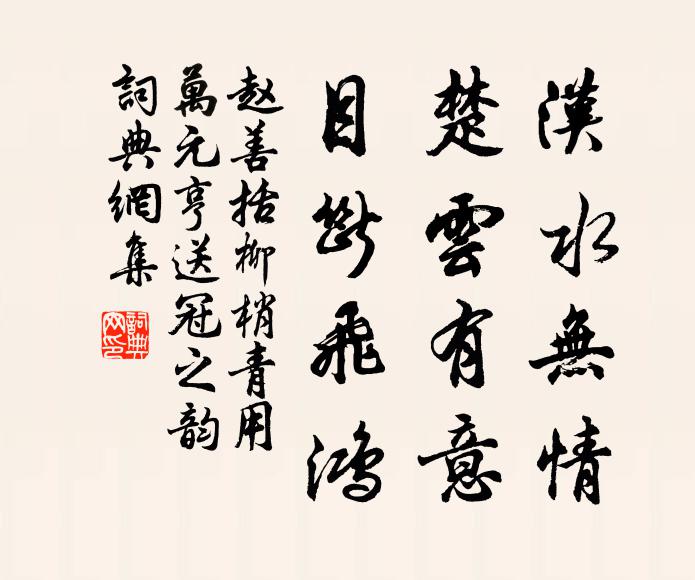 漢水無情
楚雲有意
目斷飛鴻
赵善括柳梢青用
萬元亨送冠之韵
詞典網集
詞典网印